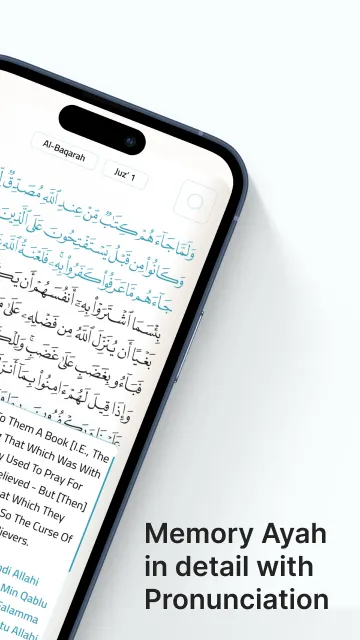 Al-Baqarah
Juz' 1
وَلَمَّا جَآءَهُمْ كِتَٰبٌ مِّنْ عِندِ ٱللَّهِ مُصَدِّقٌ
وَكَانُوا۟ مِن قَبْلُ يَسْتَفْتِحُونَ عَلَى ٱلَّذِينَ
جَآءَهُم مَّا عَرَفُوا۟ كَفَرُوا۟ بِهِۦ فَلَعْنَةُ ٱللَّهِ
بِئْسَمَا ٱشْتَرَوْا۟ بِهِۦٓ أَنفُسَهُمْ أَن
بَغْيًا أَن يُنَزِّلَ ٱللَّهُ مِن فَضْلِهِۦ عَلَىٰ
فَبَآءُو بِغَضَبٍ عَلَىٰ غَضَبٍ
وَإِذَا قِيلَ لَهُمْ ءَامِنُوا۟ بِمَآ
To Them A Book [I.E., The
That Which Was With
Used To Pray For
elieved - But [Then]
at Which They
So The Curse Of
lievers.
ndi Allahi
Min Qablu
Falamma
tu Allahi
Memory Ayah
in detail with
Pronunciation